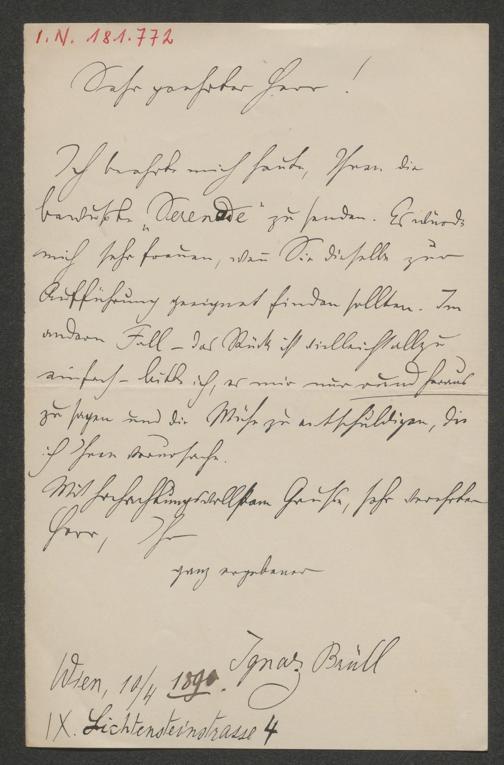 I.N. 181.772
Sehr geehrter Herr!
Ich beehre mich heute, Ihnen die
bewußte „Serenade“ zu senden. Es würde
mich sehr freuen, wenn Sie dieselbe zur
Aufführung geeignet finden sollten. Im
andern Fall – das Stück ist vielleicht allzu
einfach – bitte ich, es mir nur rund heraus
zu sagen und die Mühe zu entschuldigen, die
ich Ihnen verursache.
Mit hochachtungsvollstem Gruße, sehr verehrter
Herr, Ihr
ganz ergebener
Ignaz Brüll
Wien, 10/4 1890.
IX. Lichtensteinstrasse 4